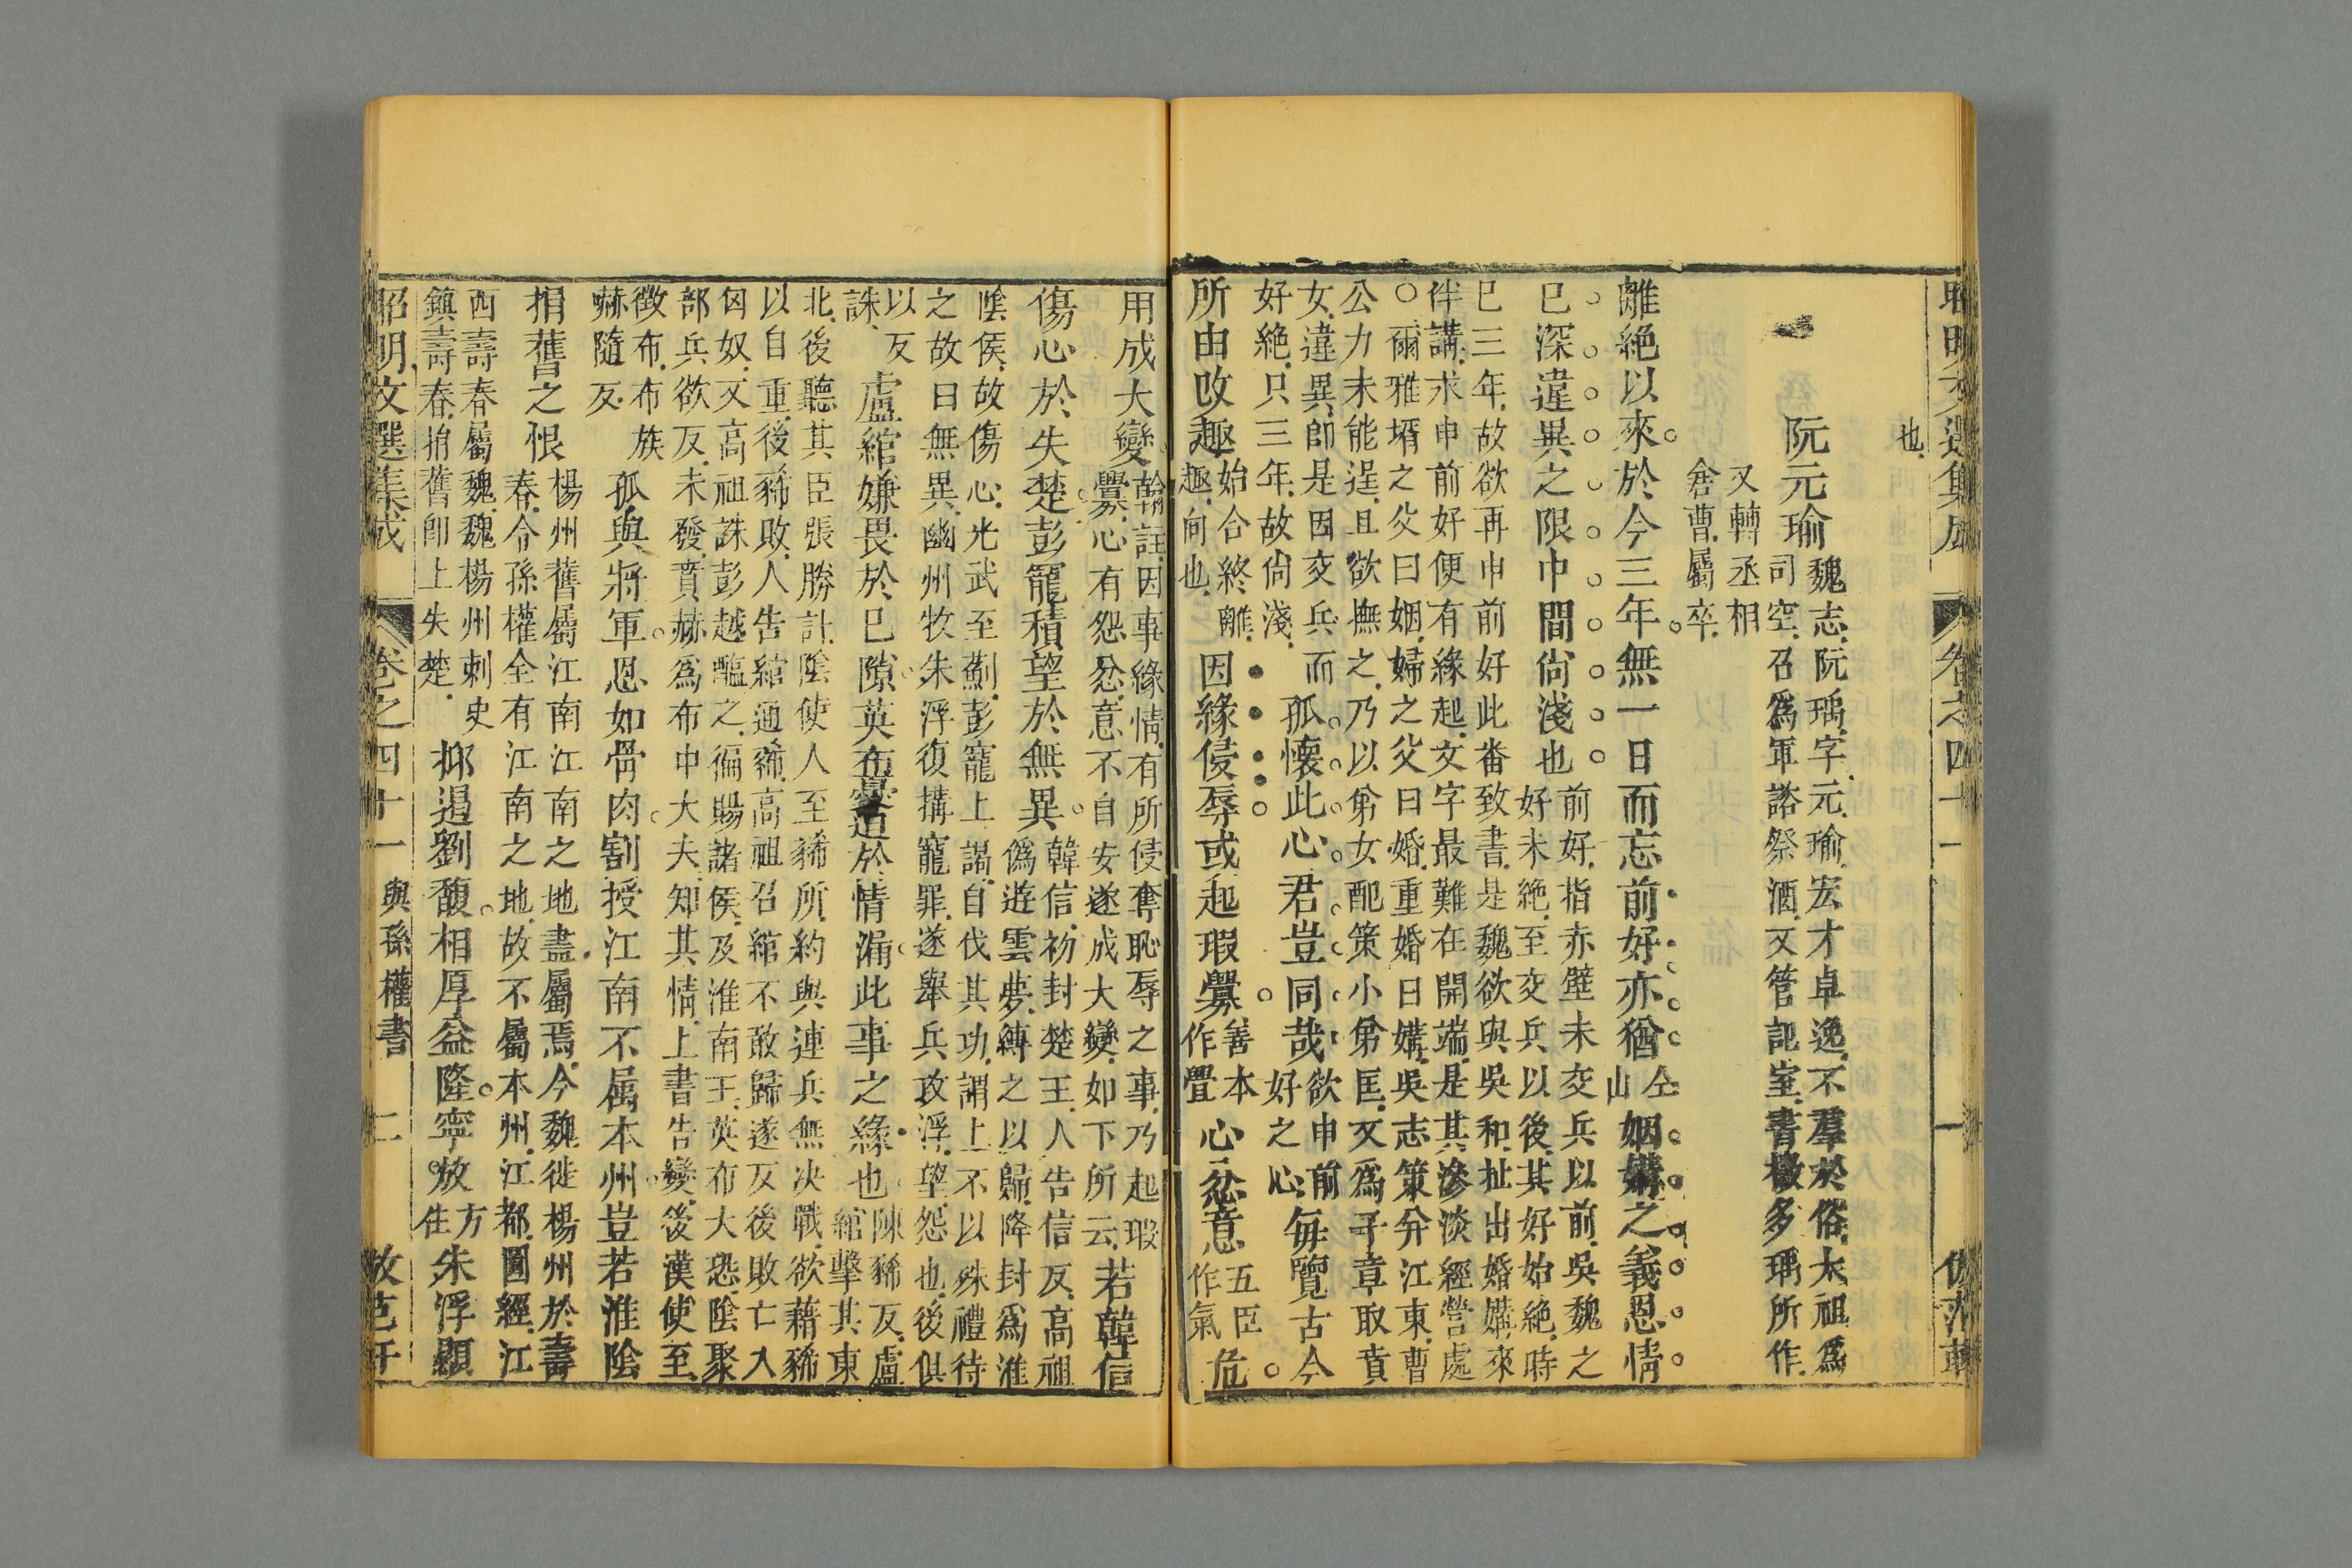 昭明文選集成 卷之四十一 一 仿范軒
也
阮元瑜
魏志阮瑀字元瑜宏才卓逸不羣於俗太祖爲
司空召爲軍諮祭酒又管記室書檄多瑀所作
又轉丞相
倉曹屬卒
離絕以來於今三年無一日而忘前好亦猶
仝
山
姻媾之義恩情
已深違異之限中間尚淺也
前好指赤壁未交兵以前吳魏之
好未絕至交兵以後其好始絕時
已三年故欲再申前好此番致書是魏欲與吳和扯出婚媾來
伴講求申前好便有緣起文字最難在開端是其滲淡經營處
○爾雅壻之父曰姻婦之父曰婚重婚曰媾吳志策分江東曹
公力未能逞且欲撫之乃以弟女配策小弟匡又爲子章取賁
女違異卽是因交兵而
好絕只三年故尚淺
孤懷此心君豈同哉
欲申前
好之心
每覽古今
所由改趣
始合終離
趣向也
因緣侵辱或起瑕釁
善本
作舋
心忿意
五臣
作氣
危
用成大變
翰註因事緣情有所侵奪恥辱之事乃起瑕
釁心有怨忿意不自安遂成大變如下所云
若韓信
傷心於失楚彭寵積望於無異
韓信初封楚王人告信反高祖
僞遊雲夢縛之以歸降封爲淮
陰侯故傷心光武至薊彭寵上謁自伐其功謂上不以殊禮待
之故曰無異幽州牧朱浮復搆寵罪遂舉兵攻浮望怨也後俱
以反
誅
盧綰嫌畏於已隙英布憂迫於情漏此事之緣也
陳豨反盧
綰擊其東
北後聽其臣張勝計陰使人至豨所約與連兵無决戰欲藉豨
以自重後豨敗人告綰通豨高祖召綰不敢歸遂反後敗亡入
匈奴又高祖誅彭越醢之徧賜諸侯及淮南王英布大恐陰聚
部兵欲反未發賁赫爲布中大夫知其情上書告變後漢使至
徵布布族
赫隨反
孤與將軍恩如骨肉割授江南不属本州豈若淮陰
捐舊之恨
楊州舊屬江南江南之地盡屬焉今魏徙楊州於壽
春今孫權全有江南之地故不屬本州江都圖經江
西壽春屬魏魏楊州刺史
鎮壽春捐舊卽上失楚
抑遏劉馥相厚益隆寧放
方
住
朱浮顯
昭明文選集成 卷之四十一 與孫權書 二